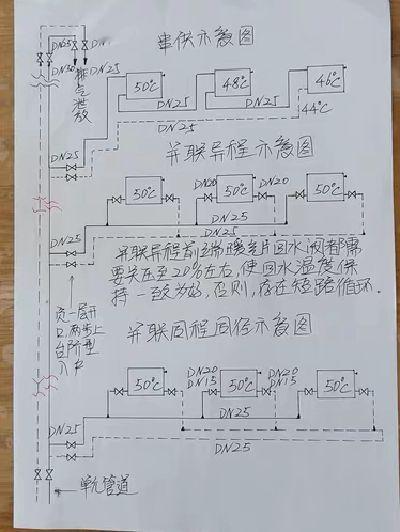 串供示意图
DN25
DN
DN50
DN25
排气泄放
50℃
48℃
46℃
DN25
DN25
44℃
DN25
并联异程示意图
DN25
DN20
DN20
50℃
50℃
50℃
DN25
DN25
DN25
并联异程前端暖气片回水阀都需
要关在至20%左右,使回水温度保
持一致为好,否则,存在短路循环.
负一层开
口,两步上
台阶型
入户
并联同程同径示意图
DN20
DN15
DN20
DN15
50℃
50℃
50℃
DN25
DN25
DN25
单元管道